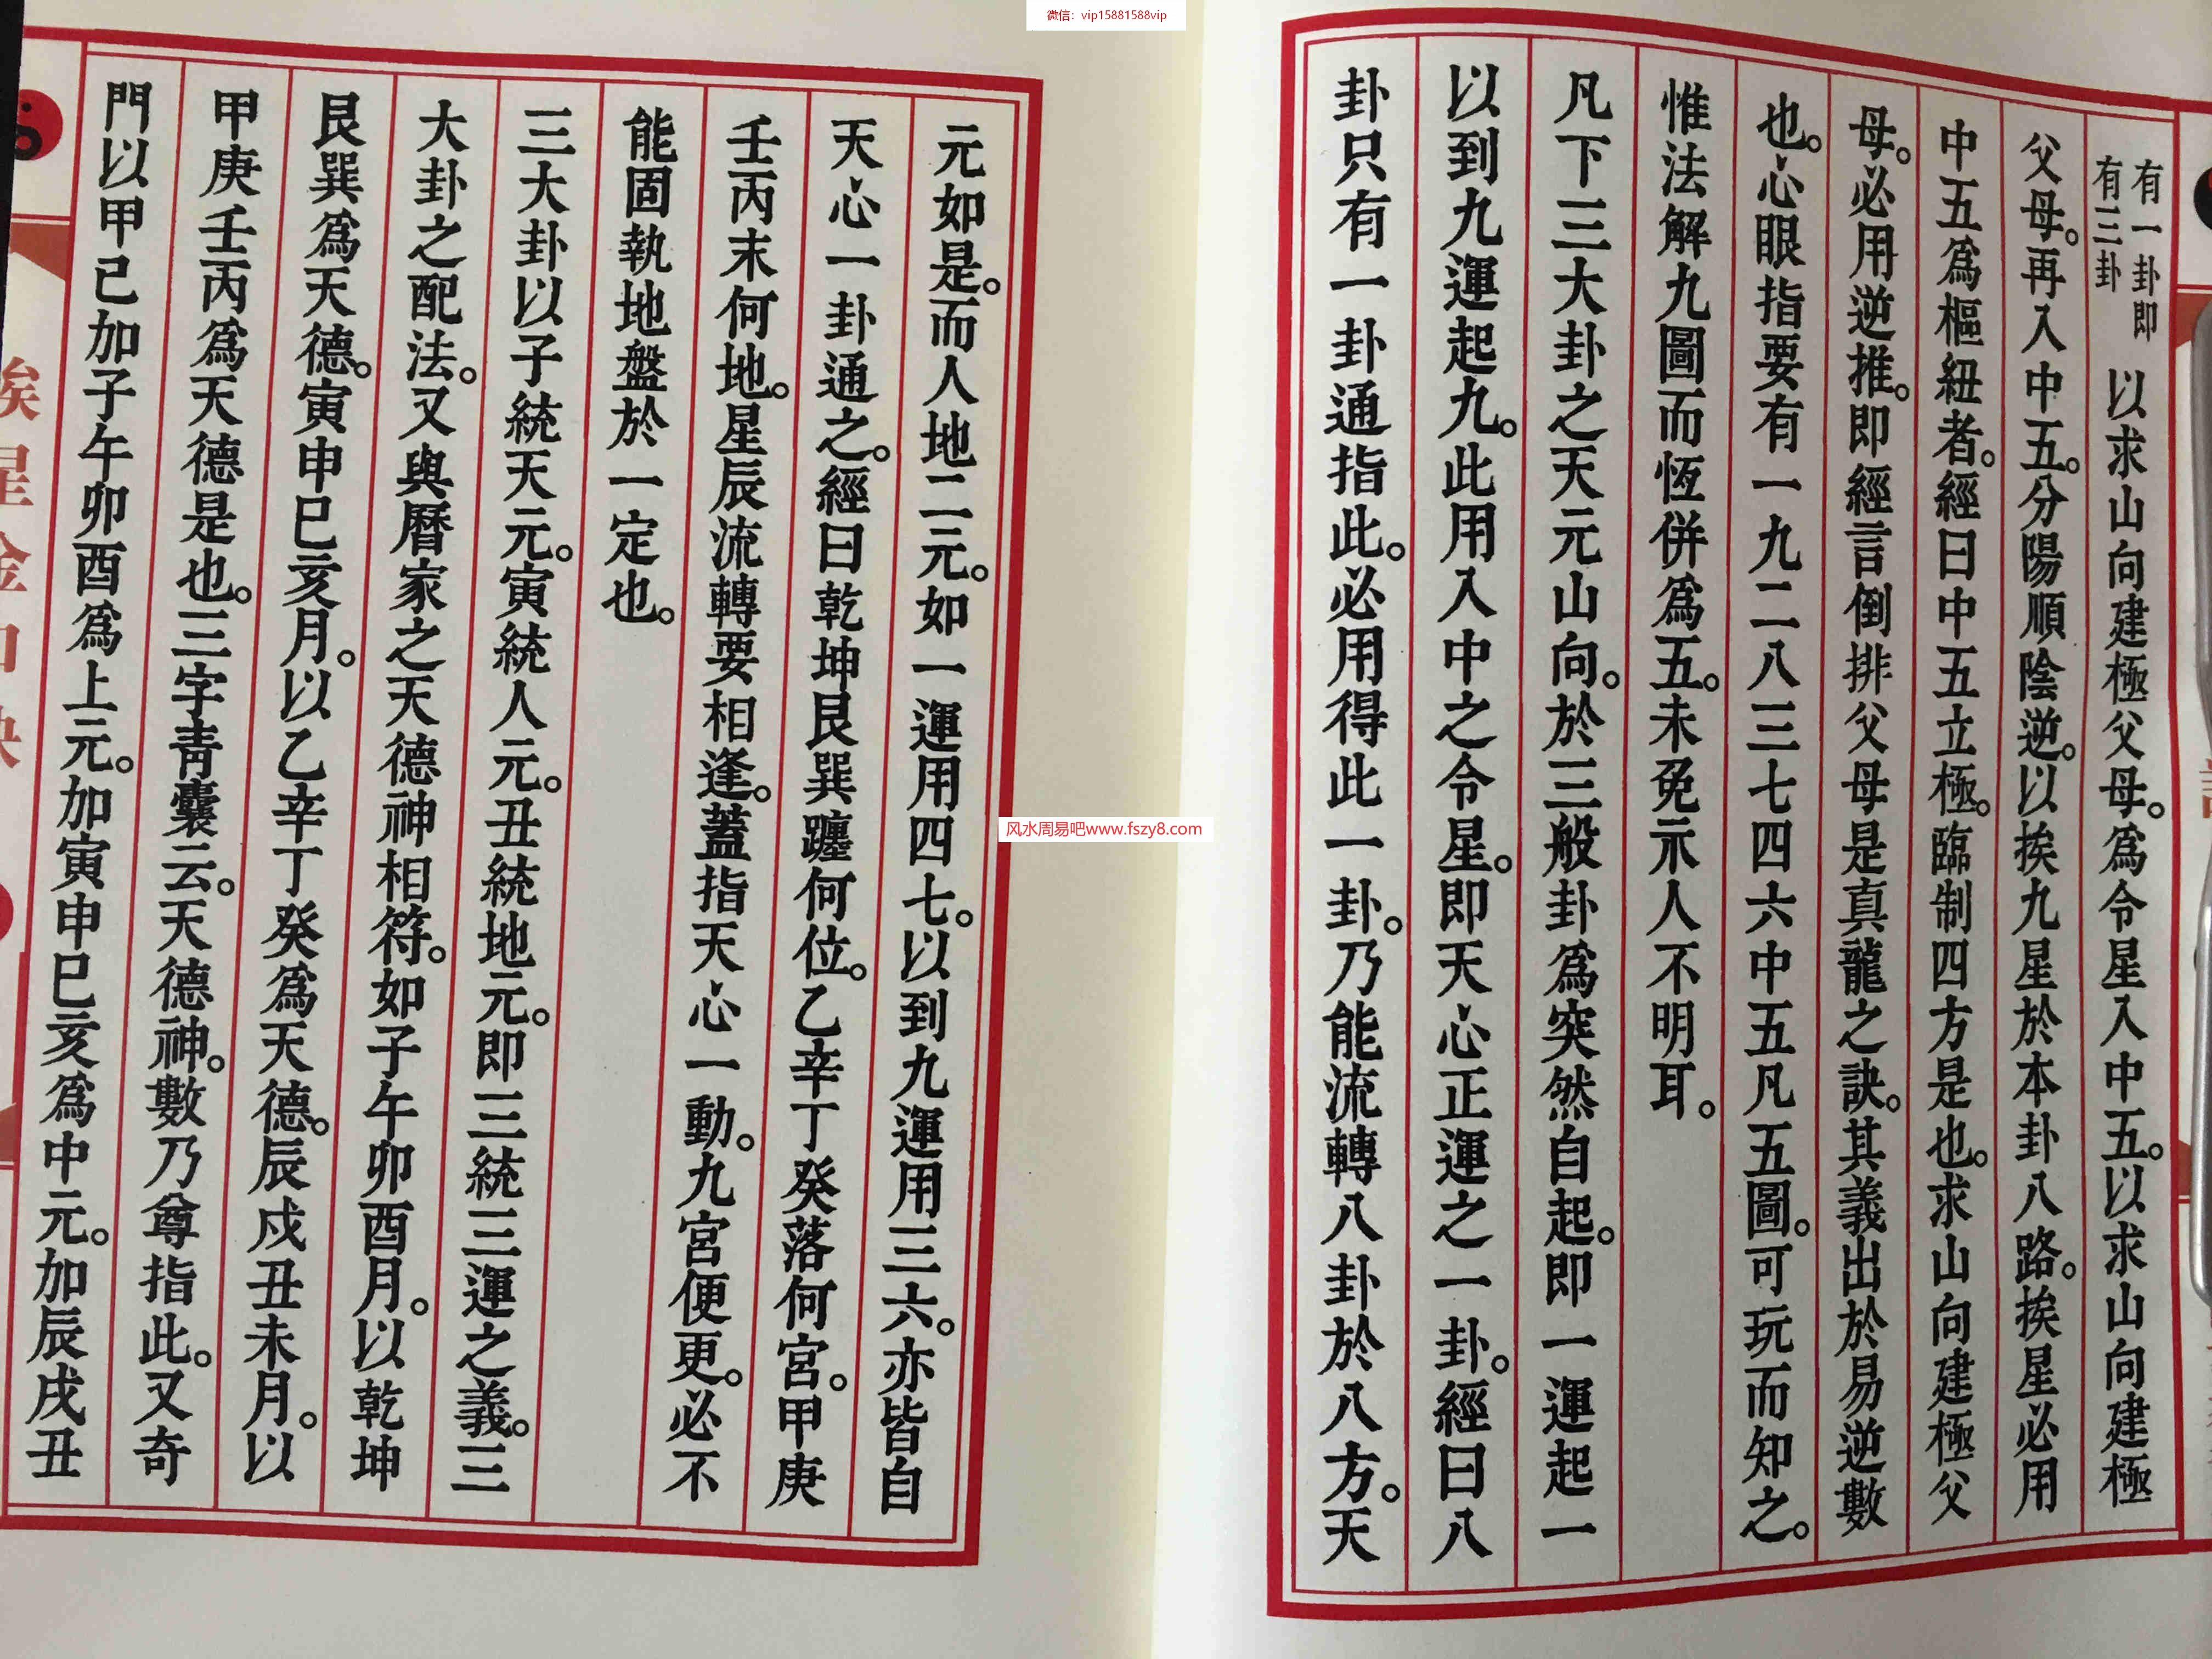 微信：vip15881588vip
有一卦即
有三卦
以求山向建極父母。為令星入中五。以求山向建極
父母。再入中五。分陽順陰逆。以挨九星於本卦八路。挨星必用
中五為樞紐者。經曰中五立極。臨制四方是也。求山向建極父
母。必用逆推。即經言倒排父母是真龍之訣。其義出於易逆數
也。心眼指要有一九二八三七四六中五凡五圖。可玩而知之。
惟法解九圖而恆併為五。未免示人不明耳。
凡下三大卦之天元山向。於三般卦為突然自起。即一運起一
以到九運起九。此用入中之令星。即天心正運之一卦。經曰八
卦只有一卦通指此。必用得此一卦。乃能流轉八卦於八方。天
元如是。而人地二元。如一運用四七。以到九運用三六。亦皆自
天心一卦通之。經曰乾坤艮巽躔何位。乙辛丁癸落何宮。甲庚
壬丙末何地。星辰流轉要相逢。蓋指天心一動。九宮便更。必不
能固執地盤於一定也。
三大卦以子統天元。寅統人元。丑統地元。即三統三運之義。三
大卦之配法。又與曆家之天德神相符。如子午卯酉月。以乾坤
艮巽為天德。寅申巳亥月。以乙辛丁癸為天德。辰戍丑未月。以
甲庚壬丙為天德是也。三字青囊云。天德神。數乃尊指此。又奇
門以甲己加子午卯酉為上元。加寅申巳亥為中元。加辰戌丑
挨星金口訣
风水周易吧www.fszy8.com